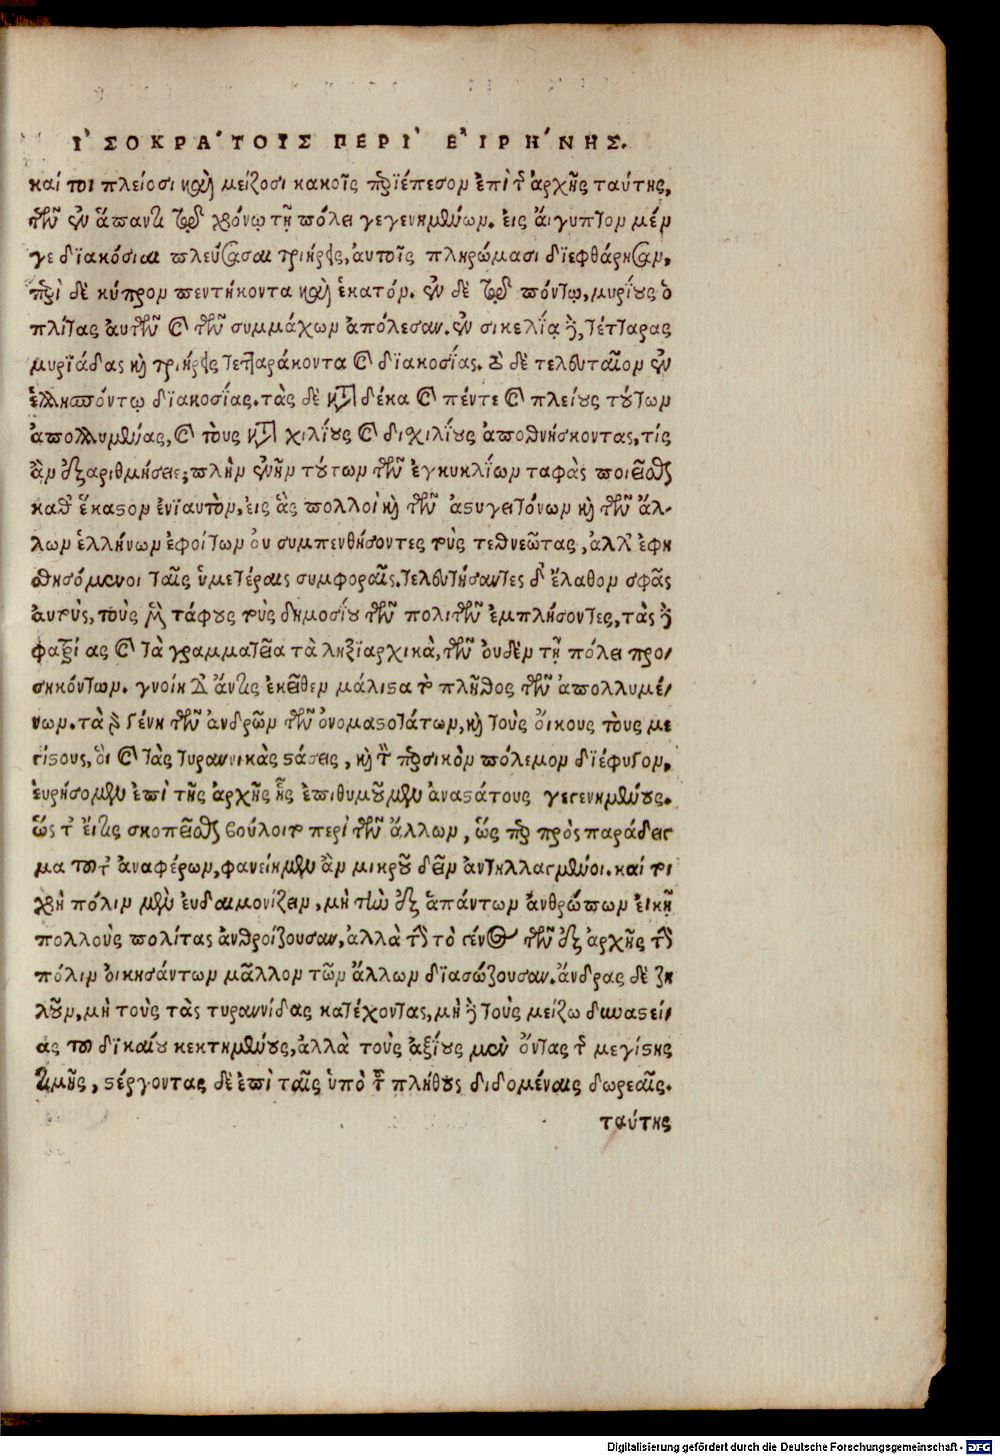 ἸΣΟΚΡΆΤΟΥΣ ΠΕΡῚ ΕἸΡΉΝΗΣ.
καί τοι πλείοσι καὶ μείζοσι κακοῖς περιέπεσον ἐπὶ τῆς ἀρχῆς ταύτης,
τῶν ἐν ἅπαντι τῷ χρόνῳ τῇ πόλει γεγενημένων. εἰς ἄιγυπτον μέν
γε διακόσιαι πλεύσασαι τριήρεις, ἀυτοῖς πληρώμασι διεφθάρησαν,
περὶ δὲ κύπρον πεντήκοντα καὶ ἑκατόν. ἐν δὲ τῷ πόντῳ, μυρίους ὁ
πλίτας ἁυτῶν καὶ τῶν συμμάχων ἀπόλεσαν. ἐν σικελίᾳ δὲ, τέτταρας
μυριάδας καὶ τριήρεις τετταράκοντα καὶ διακοσίας. τὸ δὲ τελευταῖον ἐν
ἑλλησπόντῳ διακοσίας. τὰς δὲ κατὰ δέκα καὶ πέντε καὶ πλείους τούτων
ἀπολλυμένας, καὶ τοὺς κατὰ χιλίους καὶ διχιλίους ἀποθνήσκοντας, τίς
ἂν ἐξαριθμήσειε; πλὴν ἓν ἦν τούτων τῶν ἐγκυκλίων ταφὰς ποιεῖσθαι
καθ᾽ ἕκαστον ἐνιαυτὸν, εἰς ἃς πολλοὶ καὶ τῶν ἀστυγειτόνων καὶ τῶν ἄλ-
λων ἑλλήνων ἐφοίτων ὀυ συμπενθήσοντες τοὺς τεθνεῶτας, ἀλλ᾽ ἐφη
σθησόμενοι ταῖς ὑμετέραις συμφοραῖς. τελευτήσαντες δ᾽ ἔλαθον σφᾶς
ἀυτοὺς, τοὺς μὲν τάφους τοὺς δημοσίου τῶν πολιτῶν ἐμπλήσοντες, τὰς δὲ
φατρίας καὶ τὰ γραμματεῖα τὰ ληξιαρχικὰ, τῶν ὀυδὲν τῇ πόλει προ-
σηκόντων. γνοίη δ᾽ ἄν τις ἐκεῖθεν μάλιστα τὸ πλῆθος τῶν ἀπολλυμέ-
νων. τὰ γὰρ γένη τῶν ἀνδρῶν τῶν ὀνομαστοτάτων, καὶ τοὺς ὄικους τοὺς με
γίστους, ὃι καὶ τὰς τυραννικὰς στάσεις, καὶ τὸν περσικὸν πόλεμον διέφυγον,
ἑυρήσομεν ἐπὶ τῆς ἀρχῆς ἧς ἐπιθυμοῦμεν ἀναστάτους γεγενημένους.
ὥστ᾽ ἔι τις σκοπεῖσθαι βούλοιτο περὶ τῶν ἄλλων, ὥσπερ πρὸς παράδειγ
μα τοῦτ᾽ ἀναφέρων, φανείημεν ἂν μικροῦ δεῖν ἀντηλλαγμένοι. καί τοι
χρὴ πόλιν μὲν ἐυδαιμονίζειν, μὴ τὴν ἐξ ἁπάντων ἀνθρώπων ἐικῆ
πολλοὺς πολίτας ἀνθροίζουσαν, ἀλλὰ τὴν τὸ γένος τῶν ἐξ ἀρχῆς τὴν
πόλιν ὀικησάντων μᾶλλον τῶν ἄλλων διασώζουσαν. ἄνδρας δὲ ζη
λοῦν, μὴ τοὺς τὰς τυραννίδας κατέχοντας, μὴ δὲ τοὺς μείζω δυναστεί-
ας τοῦ δικαίου κεκτημένους, ἀλλὰ τοὺς ἀξίους μὲν ὄντας τῆς μεγίστης
τιμῆς, στέργοντας δὲ ἐπὶ ταῖς ὑπὸ τοῦ πλήθους διδομέναις δωρεαῖς.
ταύτης
Digitalisierung gefördert durch die Deutsche Forschungsgemeinschaft - DFG